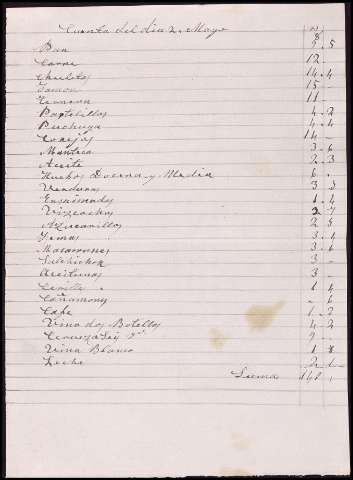 Cuenta del dia 2. Mayo
Pan 5
Carne 12
Chuletas 14 . 4
Jamon 15 -
Ternera 11
Pastelillos 4 . 2
Pechuga 4 . 4
Conejos 14 -
Manteca 3 . 6
Aceite 2 . 3
Huebos Docena y Media 6 .
Verduras 3 3
Ensaimadas 1 . 4
Vizcochos 2 7
Azucarillos 2 5
Yemas 3 . 4
Macarrones 3 . 6
Salchichon 3 -
Aceitunas 3 -
1 4
Cañamones - 6
Cafe 1 . 2
Vino dos Botellas 4 . 2
Cerveza
Vino Blanco 1
Leche 2
Suma 148